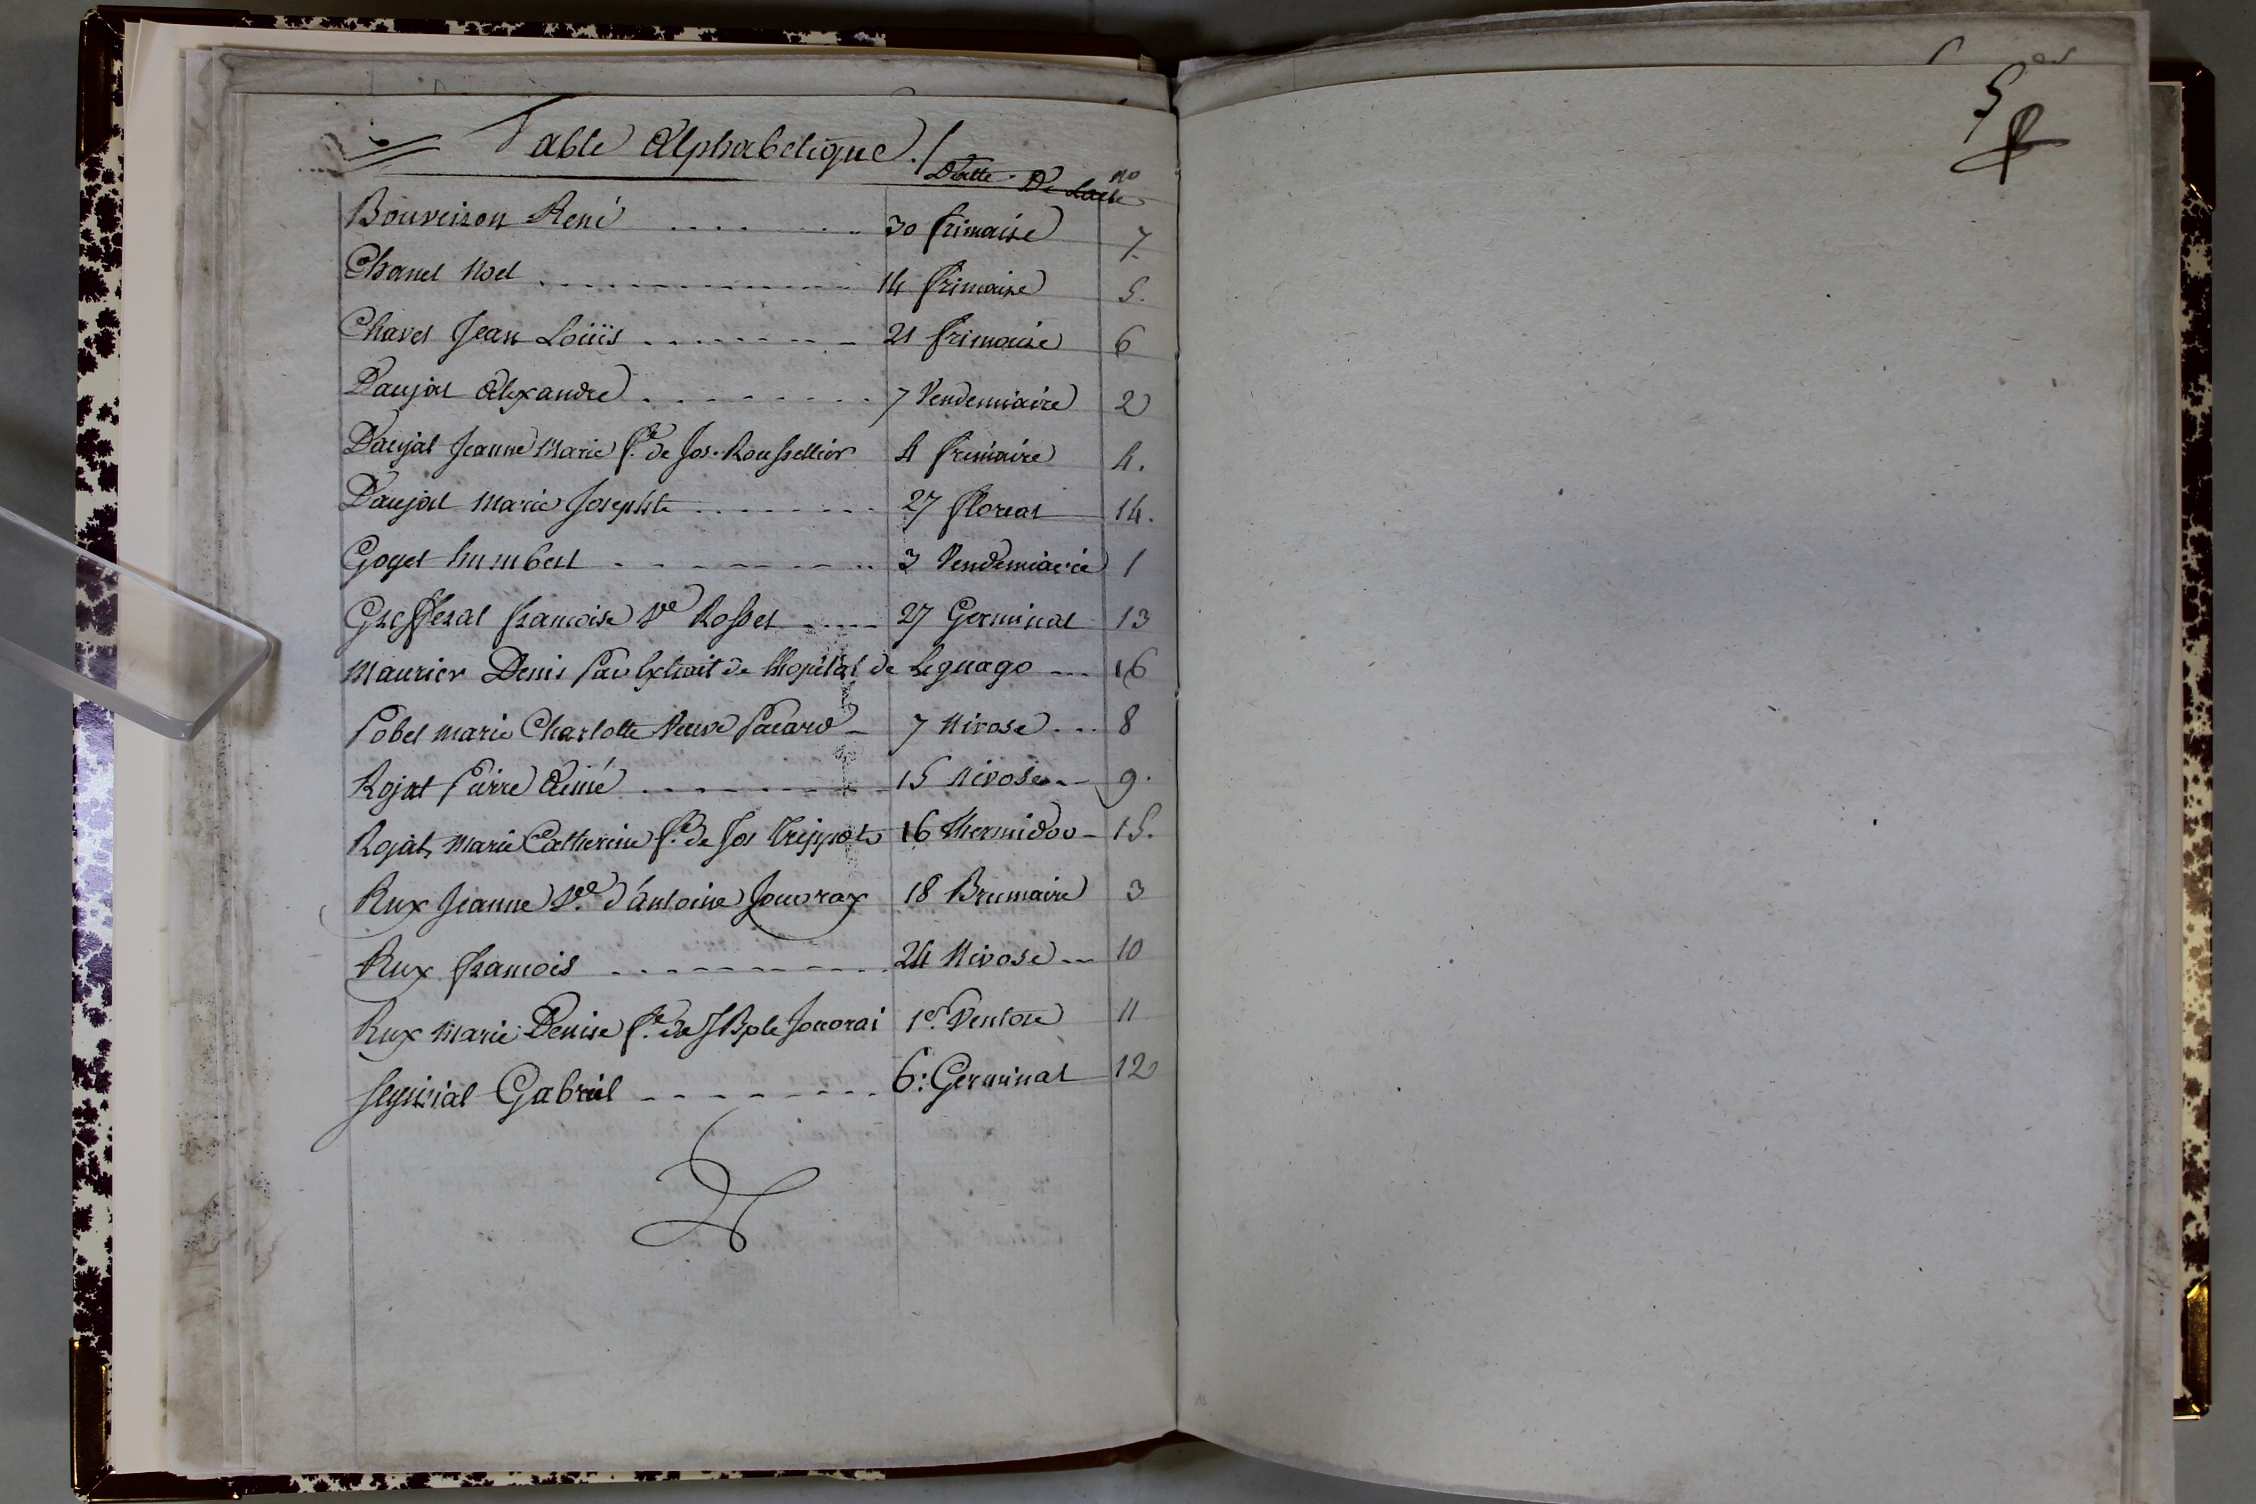 Table Alphabetique ./.
Datte De Lacte no
Bouveiron René ........ 30 frimaire 7.
Chanel Noel ........ 14 frimaire 5.
Chavet Jean Loüis ........ 21 frimaire 6
Daujat Alexandre ........ 7 Vendemiaire 2
Daujat Jeanne Marie fe. de Jos. Roussellier 4 frimaire 4.
Daujat Marie Josephte ........ 27 floreal 14.
Goyet humbert ........ 3 Vendemiaire 1
Grefferat francoise Ve Rosset ..... 27 Germinal 13
Maurier Denis par Extrait de Lhopital de Legnago --- 16
Pobel marie Charlotte Veuve Pacard - 7 Nivose ... 8
Rojat Pierre Aimé ........ 15 Nivose -- 9.
Rojat Marie Catherine fe. de Jos Trippoz 16 thermidor - 15.
Rux Jeanne Ve. d'antoine Jouvray 18 Brumaire 3
Rux francois ........ 24 Nivose -- 10
Rux Marie Denise fe. de J Bpte Jouvrai 1er. Ventose 11
Gabriel ........ 6: Germinal 12
5